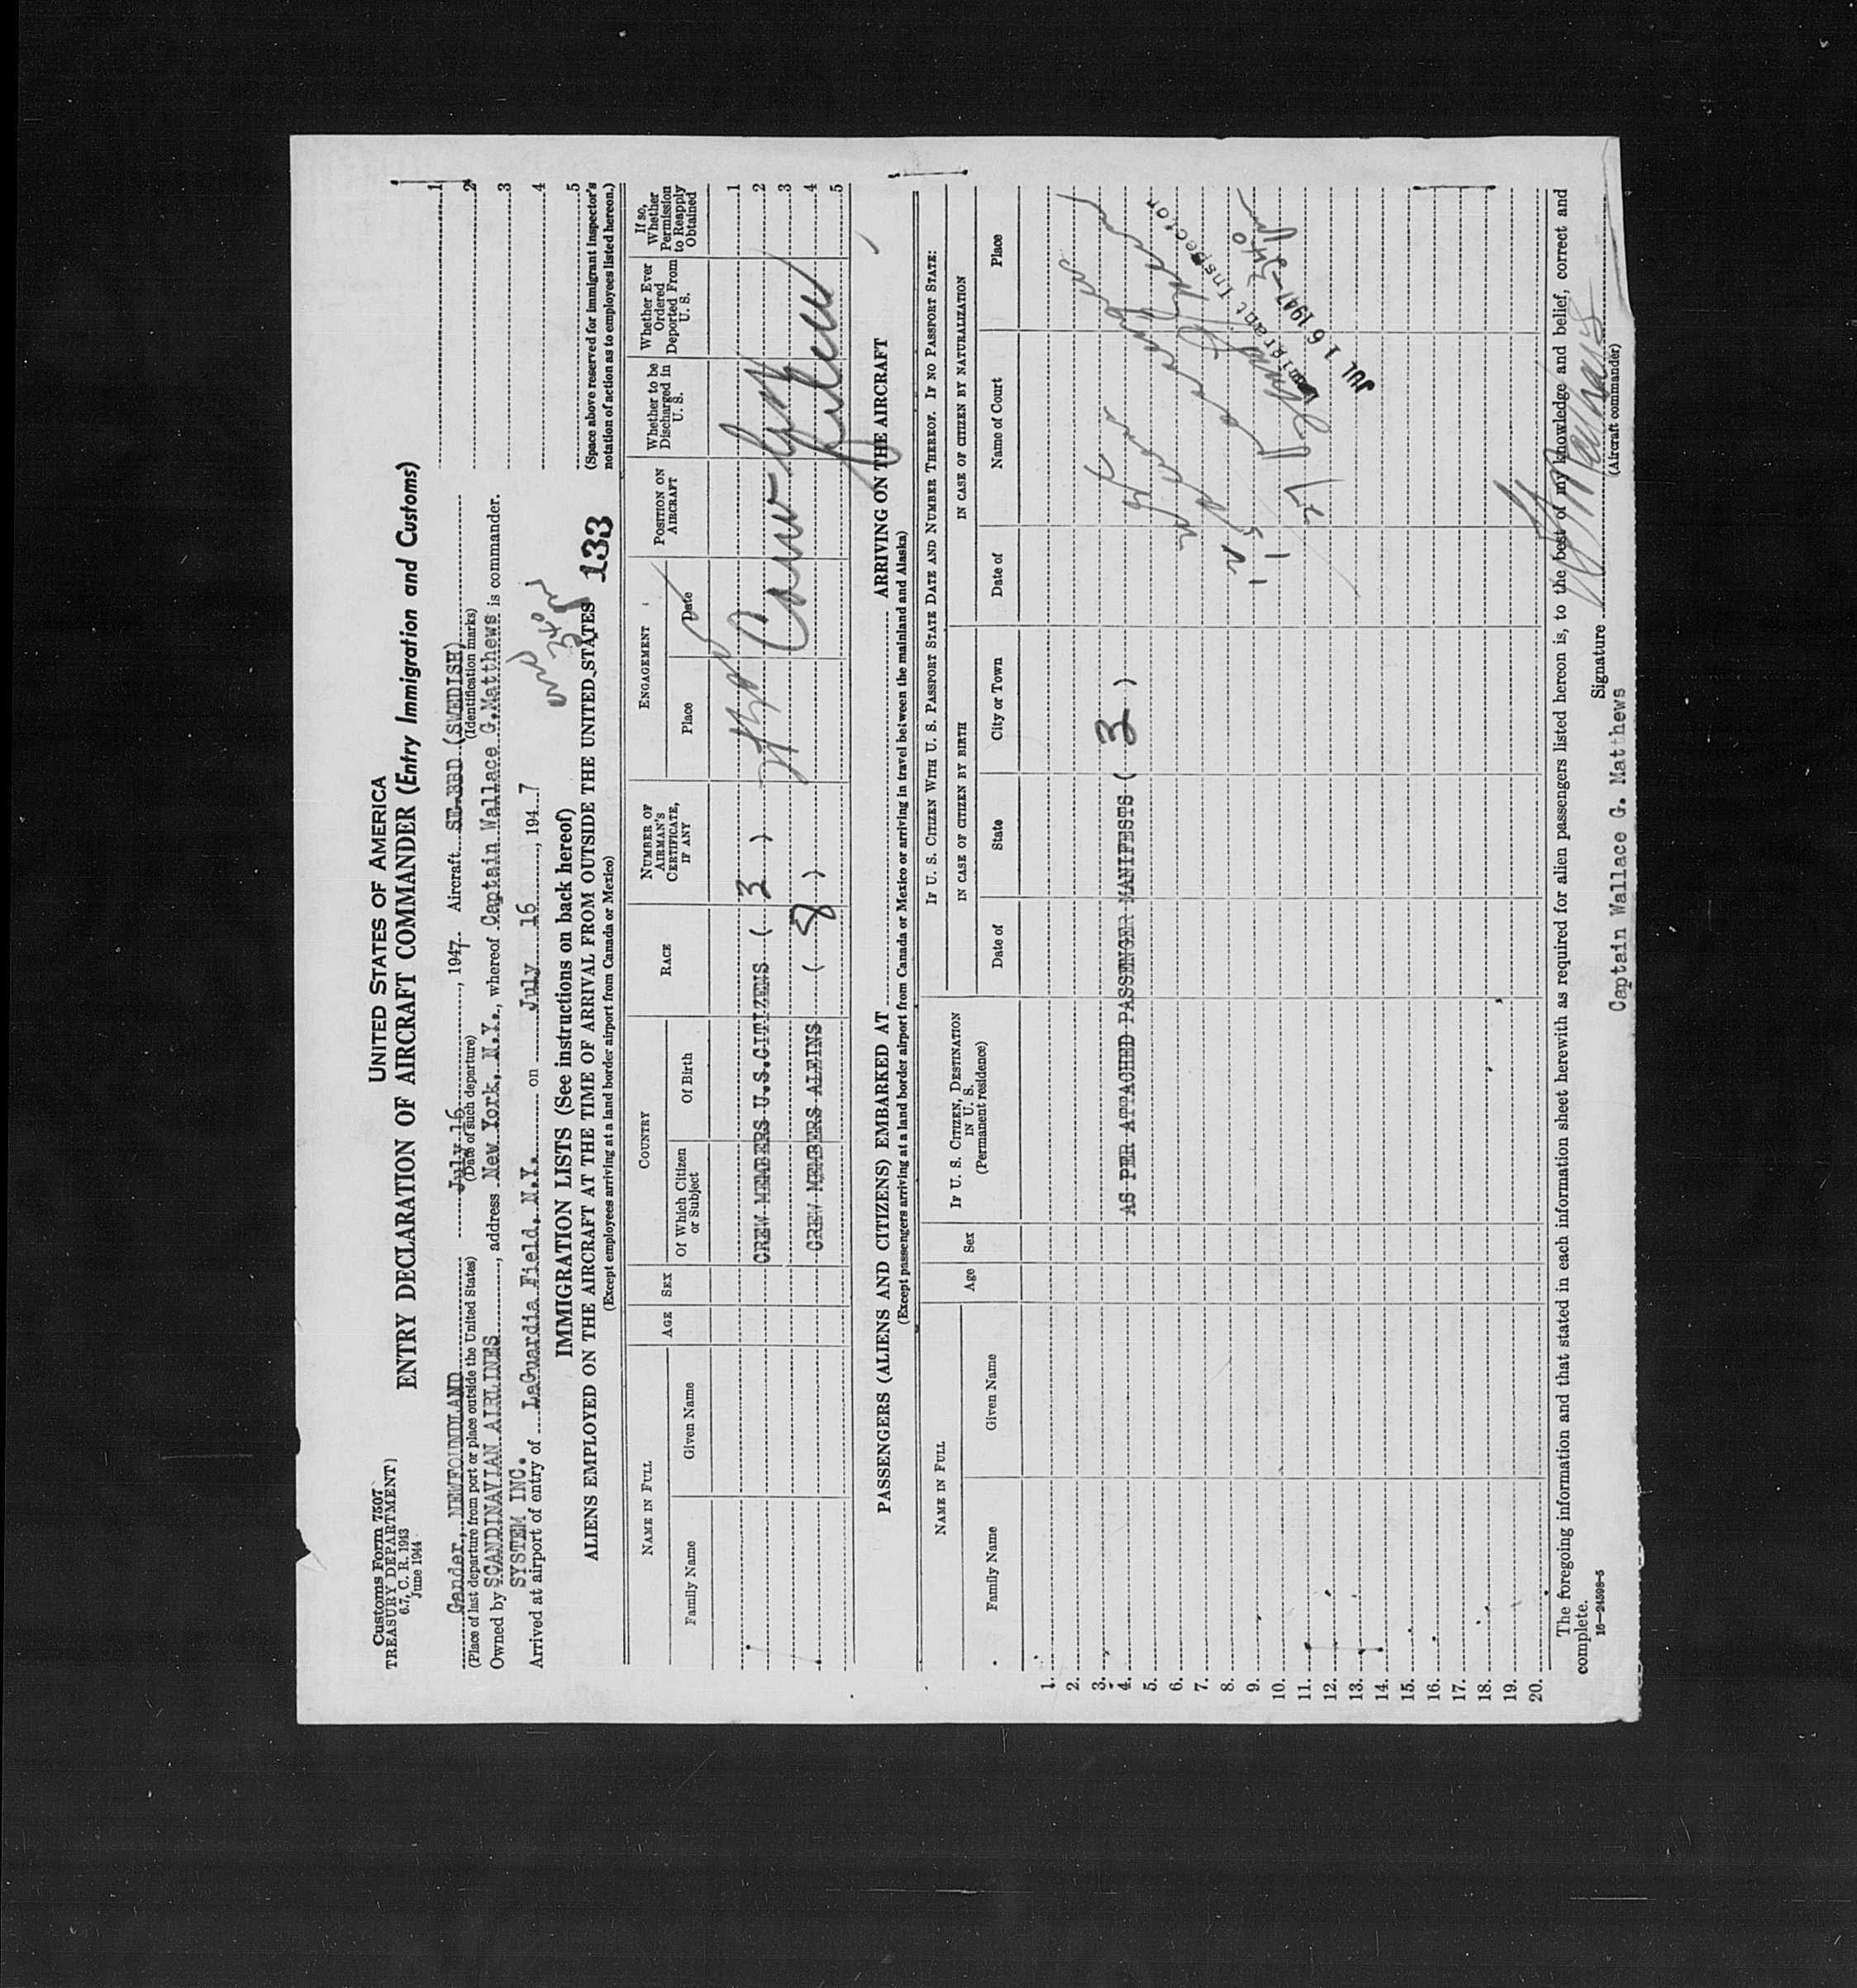 Customs Form 7507
TREASURY DEPARTMENT
6.7, C. R. 1943
June 1944
UNITED STATES OF AMERICA
ENTRY DECLARATION OF AIRCRAFT COMMANDER (Entry Immigration and Customs)
Gander, NEWFOUNDLAND July 16, 1947 Aircraft SE-BBD (SWEDISH)
(Place of last departure from port or place outside the United States) (Date of such departure) (Identification marks)
Owned by SCANDINAVIAN AIRLINES, address New York, N.Y., whereof Captain Wallace G.Matthews is commander.
SYSTEM INC.
Arrived at airport of entry of LaGuardia Field, N.Y. on July 16, 1947
1
2
3
4
5
(Space above reserved for immigrant inspector's
notation of action as to employees listed hereon.)
IMMIGRATION LISTS (See instructions on back hereof)
ALIENS EMPLOYED ON THE AIRCRAFT AT THE TIME OF ARRIVAL FROM OUTSIDE THE UNITED STATES 133
(Except employees arriving at a land border airport from Canada or Mexico)
NAME IN FULL
Family Name
Given Name
AGE
SEX
COUNTRY
Of Which Citizen or Subject
Of Birth
RACE
NUMBER OF AIRMAN'S CERTIFICATE, IF ANY
ENGAGEMENT
Place
Date
POSITION ON AIRCRAFT
Whether to be Discharged in U. S.
Whether Ever Ordered Deported From U. S.
If so, Whether Permission to Reapply Obtained
1
CREW MEMBERS U.S.CITIZENS ( 3 ) 2
3
CREW MEMBERS ALEINS ( 8 ) 4
5
PASSENGERS (ALIENS AND CITIZENS) EMBARKED AT ARRIVING ON THE AIRCRAFT
(Except passengers arriving at a land border airport from Canada or Mexico or arriving in travel between the mainland and Alaska)
NAME IN FULL
Family Name
Given Name
Age
Sex
IF U. S. CITIZEN, DESTINATION IN U. S. (Permanent residence)
IF U. S. CITIZEN WITH U. S. PASSPORT STATE DATE AND NUMBER THEREOF. IF NO PASSPORT STATE:
IN CASE OF CITIZEN BY BIRTH
Date of
State
City or Town
IN CASE OF CITIZEN BY NATURALIZATION
Date of
Name of Court
Place
1.
2.
3.
4. AS PER ATTACHED PASSENGER MANIFESTS ( 3 )
5.
6.
7.
8.
9.
10.
11.
12.
13.
14.
15.
16.
17.
18.
19.
20.
Immigrant Inspector
JUL 16 1947
The foregoing information and that stated in each information sheet herewith as required for alien passengers listed hereon is, to the best of my knowledge and belief, correct and
complete.
16—24598-5
Signature
(Aircraft commander)
Captain Wallace G. Matthews